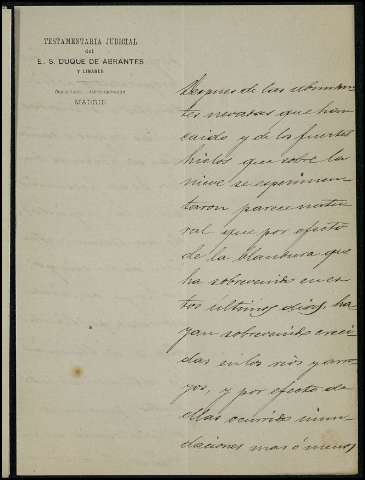 TESTAMENTARIA JUDICIAL
del
E. S. DUQUE DE ABRANTES
Y LINARES
MADRID
Despues de las abundan-
tes nevadas que han
caido y de los fuertes
hielos que sobre la
nieve se esperimen-
taron parece natu-
ral que por efecto
de la blandura que
ha sobrevenido en es-
tos ultimos dias, ha-
yan sobrevenido creci-
das en los rios y arro-
yos, y por efecto de
ellas ocurrido inun-
daciones mas ó menos